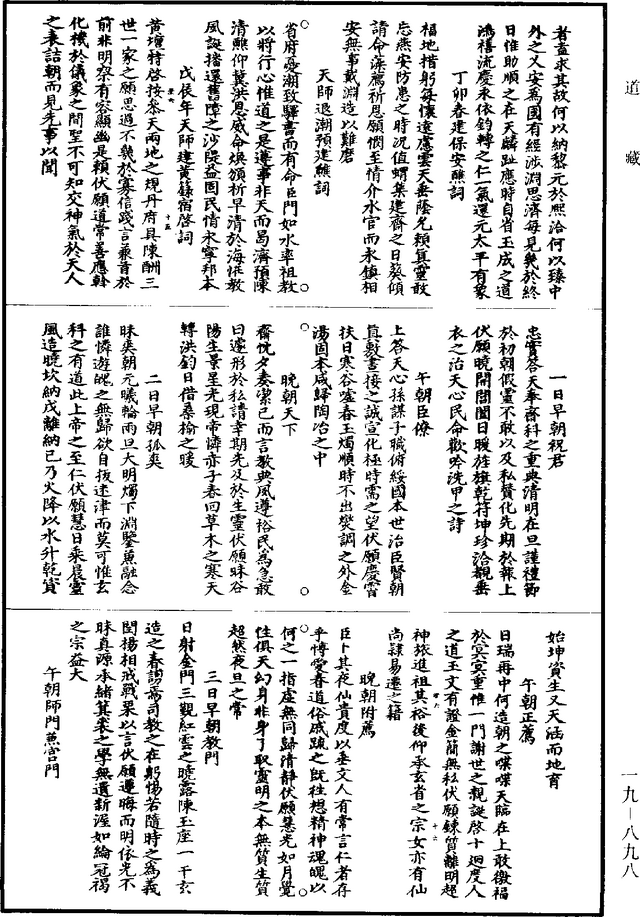 道藏
者蓋求其故何以納黎元於熙洽何以臻中
外之乂安為國有經涉淵思濟每見幾於終
日惟助順之在天麟趾應時自省玉成之道
鴻禧流慶永依鈞轉之仁一氣還元太平有象
丁卯春建保安醮詞
福地措躬每懷遠慮雲天垂蔭允賴真靈敢
忘燕安防患之時況值蝟集建齋之日葵傾
請命藻薦祈恩願憫至情介水官而永鎮相
安無事戴淵造以難磨
天師退潮預建醮詞
省府憑潮致驛書而有命臣門如水率祖教
以將行心惟道之是遵事非天而曷濟預陳
清醮仰冀洪恩威命煥頒祈早清於海徼教
風誕播還舊障之沙隄益固民情永寧邦本
戊辰年天師建黃籙宿啓詞
黃壇特啓按參天兩地之規丹府具陳酬三
世一家之願思過不幾於寡信踐言兼首於
前非明察有容顯幽是賴伏願道常善應幹
化機於儀象之間聖不可知交神氣於天人
之表詰朝而見先事以聞
一日早朝祝君
忠實答天奉齋科之重典清明在旦謹禮節
於初朝假靈不敢以及私贊化先期於報上
伏願曉開閶闔日暖旌旗乾符坤珍洽觀垂
衣之治天心民命歡吟洗甲之詩
午朝臣僚
上答天心孫謀子職俯綏國本世治臣賢朝
真敷晝接之誠宣化極時需之望伏願慶霄
扶日寒谷噓春玉燭順時不出燮調之外金
湯固本咸歸陶冶之中
晚朝天下
齋忱夕奏潔已而言教典風遵裕民為急敢
曰邇形於私請幸期先及於生靈伏願昧谷
陽生景星光現帝憐赤子春回草木之寒天
轉洪鈞日借桑榆之暖
二日早朝孤爽
昧爽朝元曦輪雨旦大明燭下淵鑒薰融念
誰憐遊魄之無歸欲自拔迷津而莫可惟玄
科之有道此上帝之至仁伏願慧日乘晨靈
風造曉坎納戊離納已乃火降以水升乾資
始坤資生又天涵而地育
午朝正薦
日瑞再中何造朝之喋喋天臨在上敢徼福
於冥冥重惟一門謝世之親誕啓十迴度人
之道玉文有證金簡無私伏願鍊質離明超
神旅進祖其裕後仰承玄省之宗女亦有仙
尚隷易遷之籍
晚朝附薦
臣卜其夜仙貴度以垂文人有常言仁者存
乎博愛眷道俗戚疏之既往想精神魂魄以
何之一指虛無同歸清靜伏願慧光如月覺
性俱天幻身非身了取靈明之本無質生質
超然夜旦之常
三日早朝教門
日射金門三觀紅雲之曉露陳玉座一干玄
造之春謅焉司教之在躬惕若隨時之為義
閏揚相戒戰果以言伏願遵晦而明依光不
昧真源本緒箕裘之學無遺新渥如綸冠褐
之宗益大
午朝師門蒽宮門
一九-八九八